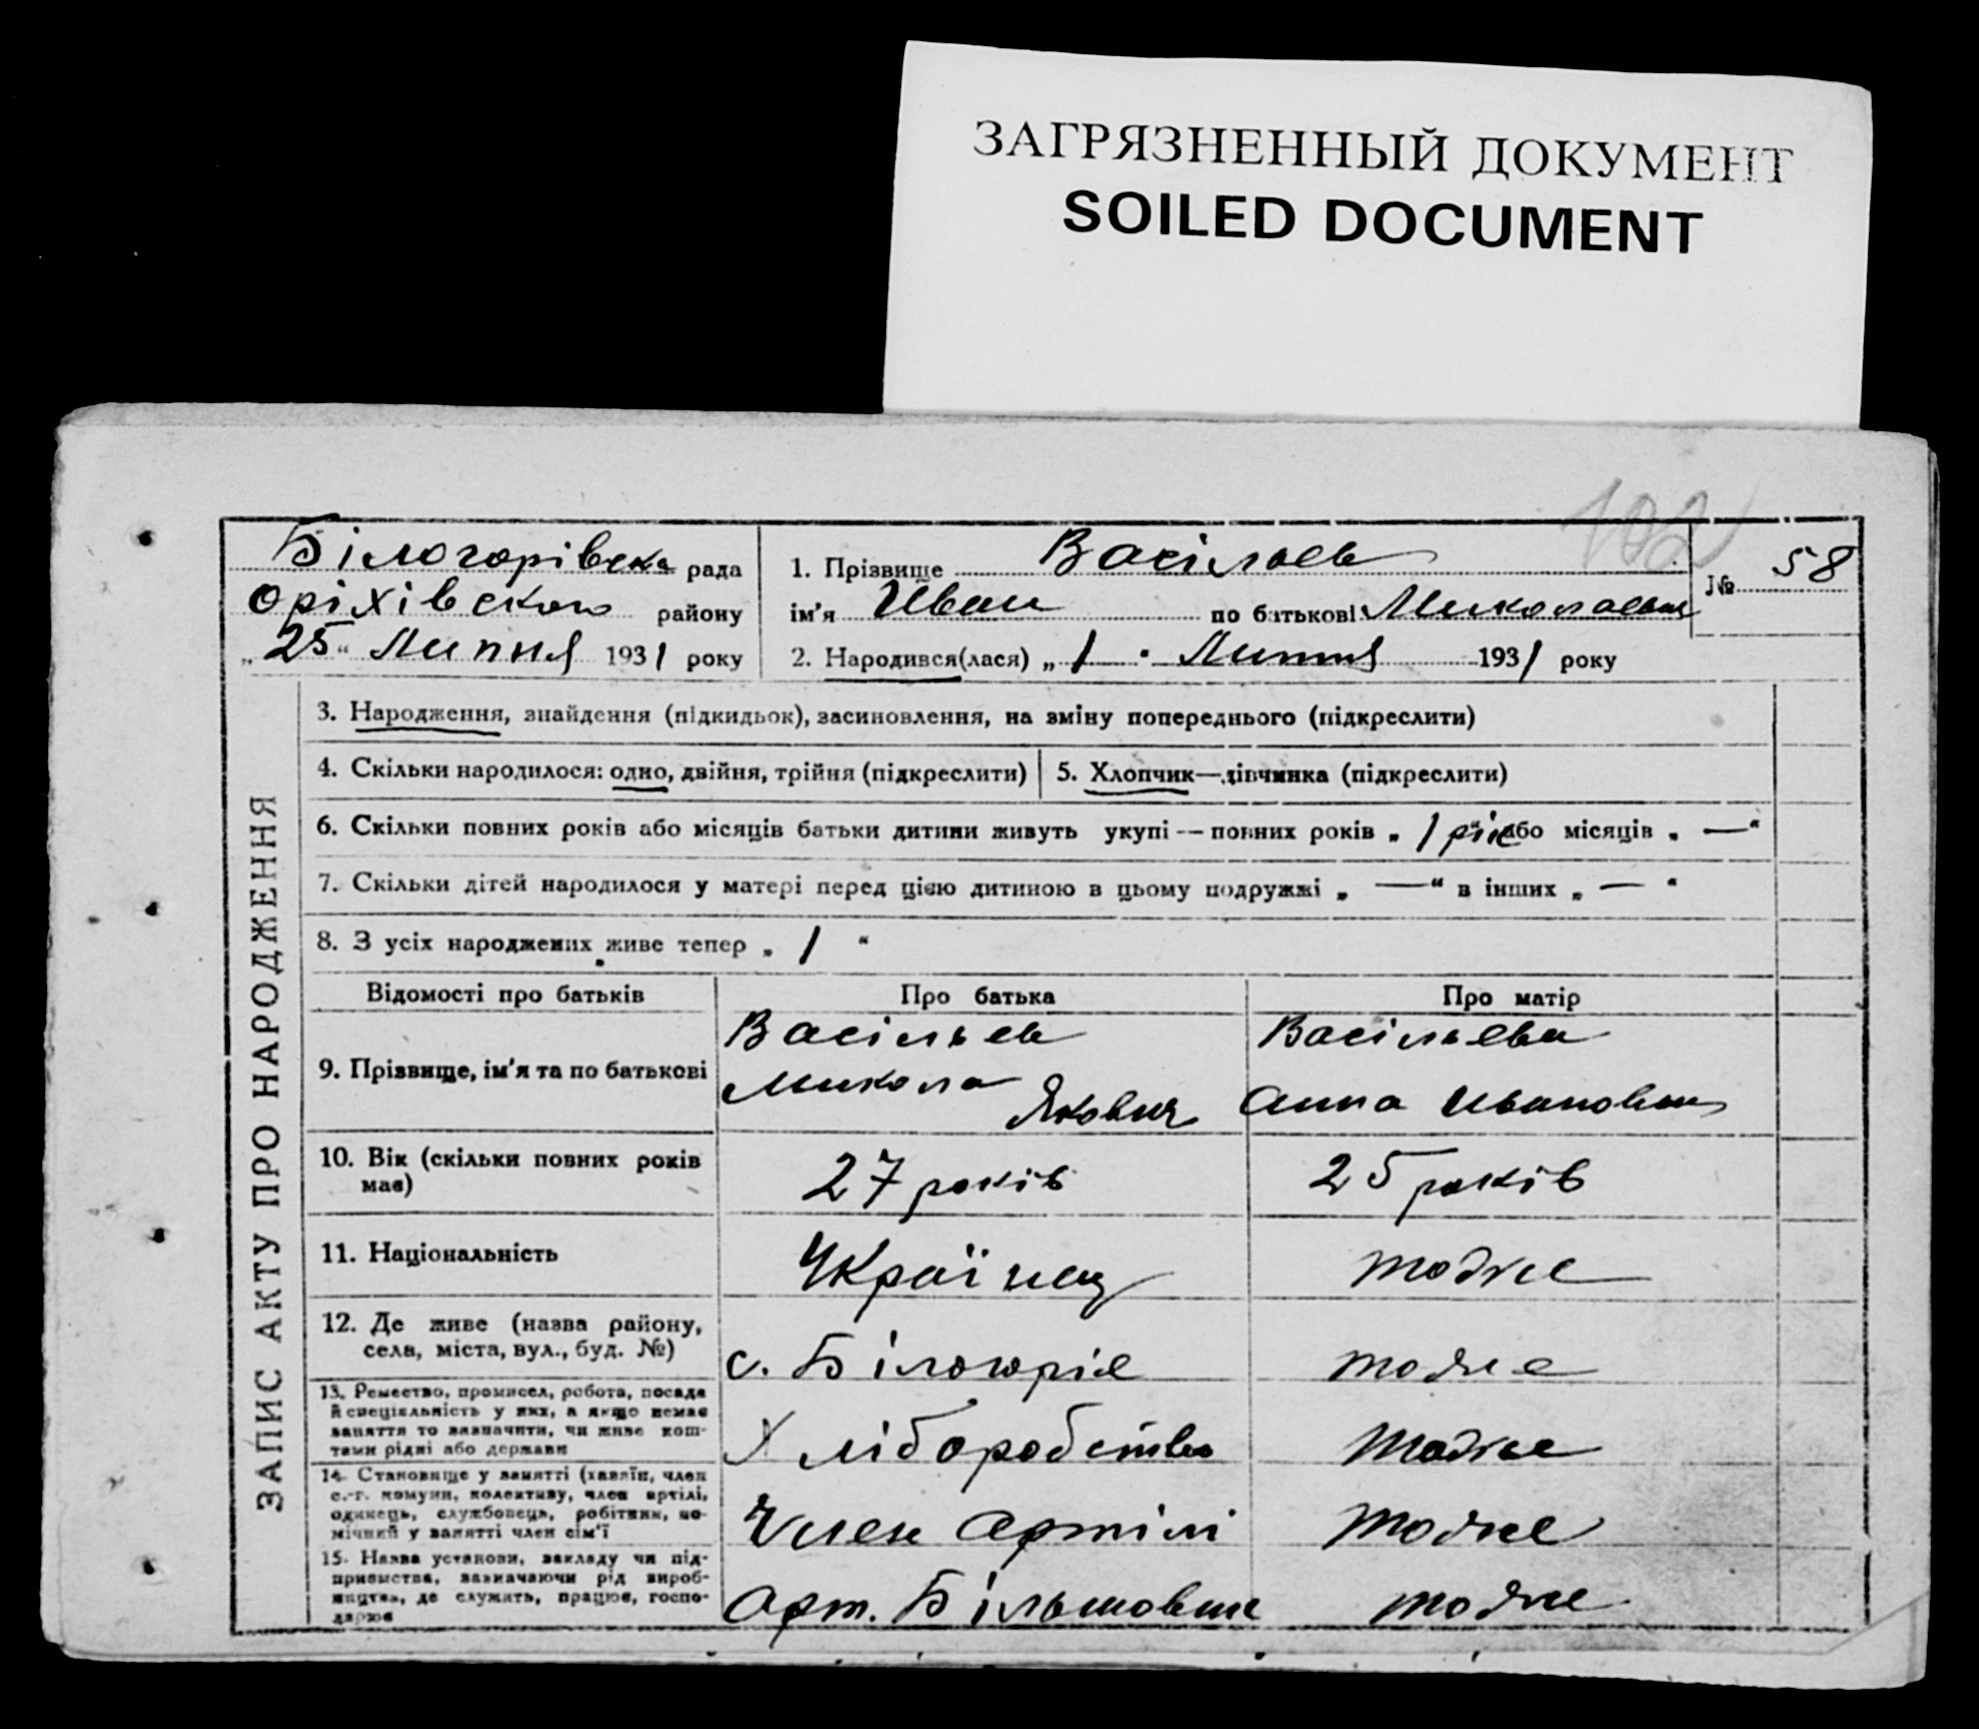 ЗАГРЯЗНЕННЫЙ ДОКУМЕНТ
SOILED DOCUMENT
102
Білогорівська рада
Оріхівського району
„25“ Липня 1931 року
1. Прізвище Васільєв
ім'я Иван по батькові Миколаевич
№ 58
2. Народився(лася) „1 Липня 1931 року
ЗАПИС АКТУ ПРО НАРОДЖЕННЯ
3. Народження, знайдення (підкидьок), засиновлення, на зміну попереднього (підкреслити)
4. Скільки народилося: одно, двійня, трійня (підкреслити)
5. Хлопчик—дівчинка (підкреслити)
6. Скільки повних років або місяців батьки дитини живуть укупі — повних років „ 1 рік або місяців „ —“
7. Скільки дітей народилося у матері перед цією дитиною в цьому подружжі „ —“ в інших „ — “
8. З усіх народжених живе тепер „ 1 “
Відомості про батьків Про батька Про матір
9. Прізвище, ім'я та по батькові
Васільев
Микола
Якович
Васільева
Анна Ивановна
10. Вік (скільки повних років
має)
27 років
25 років
11. Національність
Українец
тодже
12. Де живе (назва району,
села, міста, вул., буд. №)
с. Білогоріе
тодже
13. Ремество, промисел, робота, посада
й спеціяльність у них, а якщо немає
заняття то зазначити, чи живе кош-
тами рідні або держави
Хліборобство
тодже
14. Становище у занятті (хазяїн, член
с.-г. комуни, колективу, член артілі,
одинець, службовець, робітник, по-
мічний у занятті член сім'ї
Член Артілі
тодже
15. Назва установи, закладу чи під-
приємства, зазначаючи рід вироб-
ництва, де служить, працює, госпо-
дарює
Арт. Більшовик
тодже